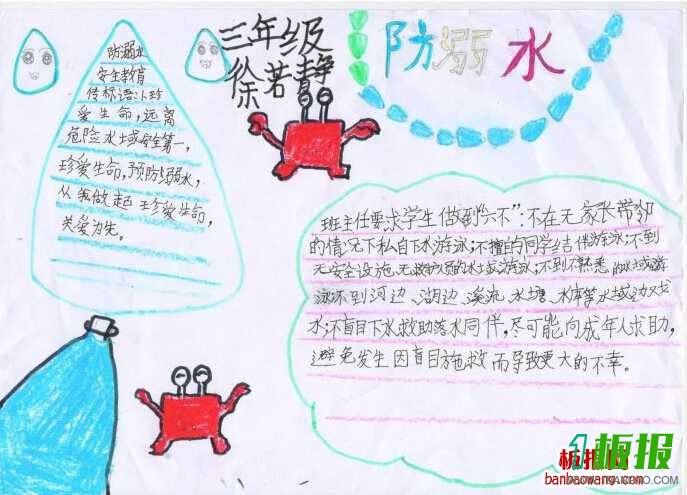 三年级
徐若静
防溺水
防溺水
安全教育
传标语:1、珍
爱生命,远离
危险水域安全第一,
珍爱生命,预防溺水,
从我做起 珍爱生命,
关爱为先。
班主任要求学生做到“六不”:不在无家长带领
的情况下私自下水游泳;不擅自同学结伴游泳;不到
无安全设施、无救护员的水域游泳;不到不熟悉的水域游
泳不到河边、湖边、溪流、水塘、水库等水域边戏
水;不盲目下水救助落水同伴,尽可能向成年人求助,
避免发生因盲目施救而导致更大的不幸。
板报网
banbaowang.com
板报